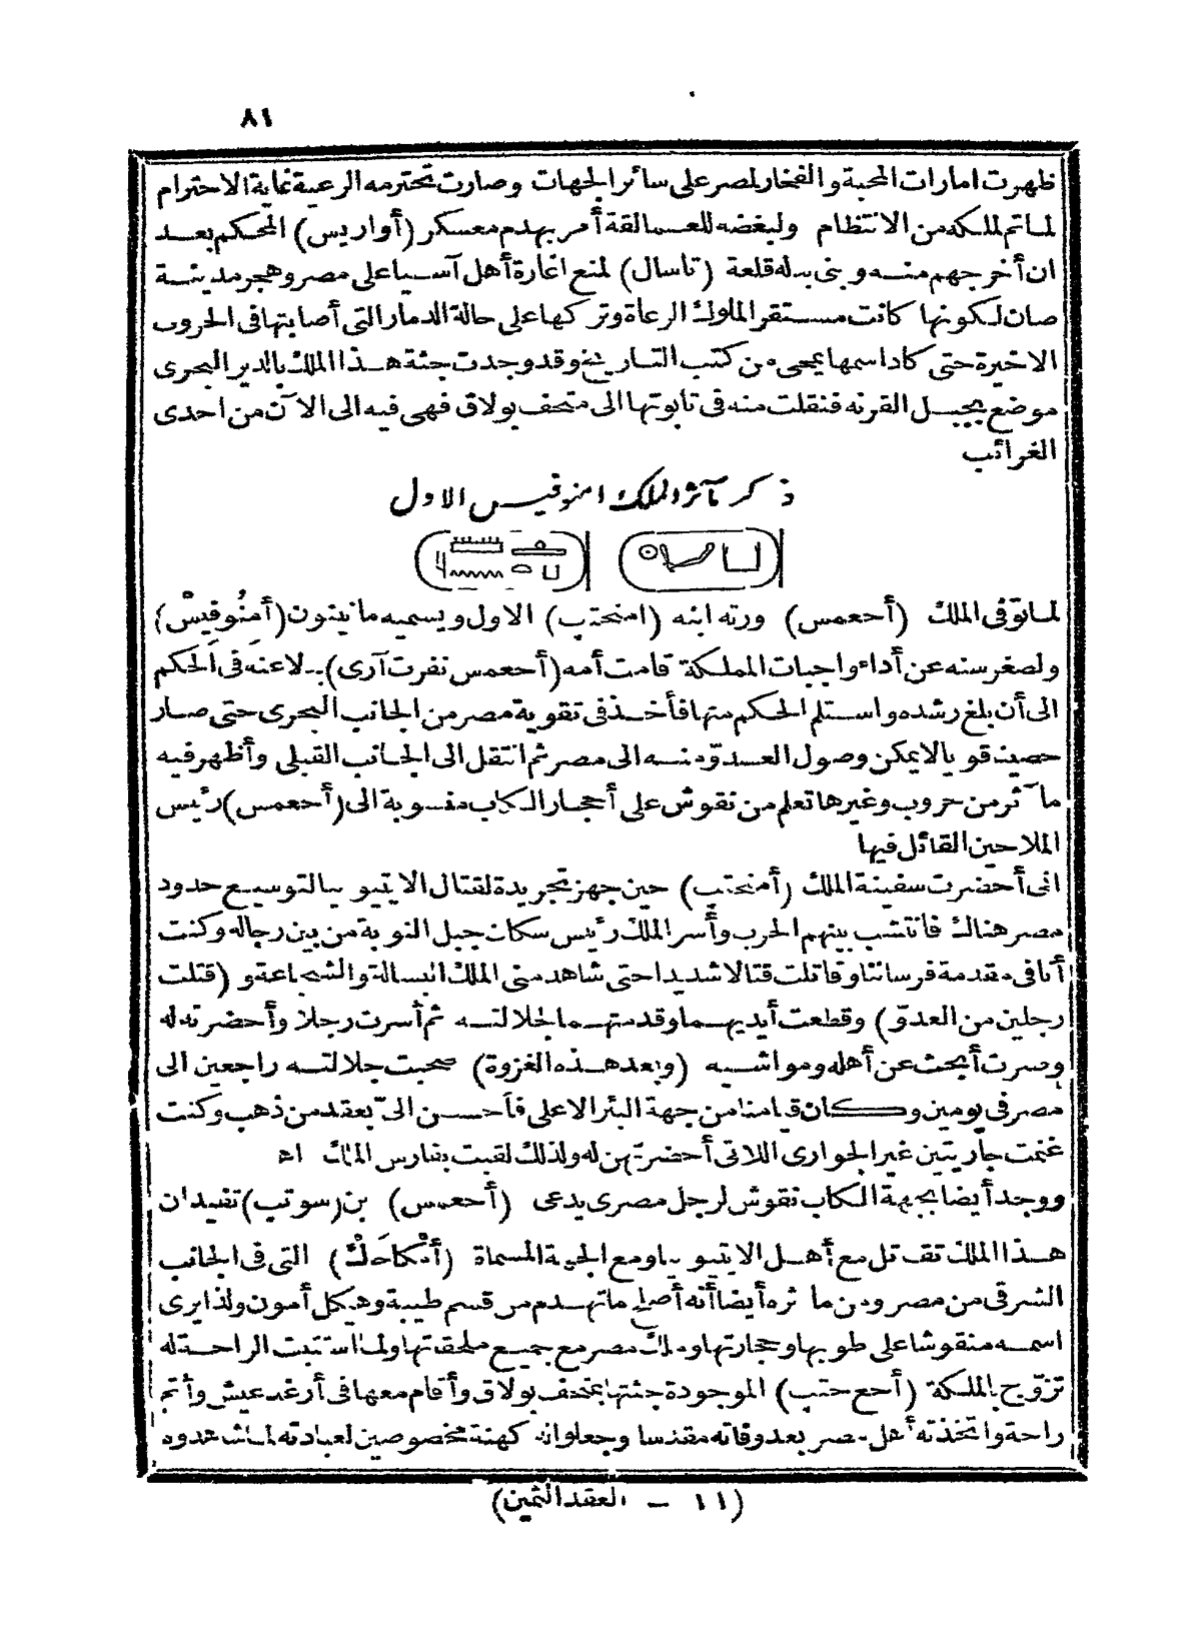 ٨١
ظهرت امارات المحبة والفخار لمصر على سائر الجهات وصارت تحترمه الرعية غاية الاحترام
لما تم لملكه من الانتظام ولبغضه للعمالقة أمر بهدم معسكر (أواريس) المحكم بعد
ان أخرجهم منه وبنى بدله قلعة (تاسال) لمنع اغارة أهل آسيا على مصر وهجر مدينة
صان لكونها كانت مستقر الملوك الرعاة وتركها على حالة الدمار التى أصابتها فى الحروب
الاخيرة حتى كاد اسمها يمحى من كتب التاريخ وقد وجدت جثة هذا الملك بالدير البحرى
موضع بجبل القرنه فنقلت منه فى تابوتها الى متحف بولاق فهى فيه الى الآن من احدى
الغرائب
ذكر مآثر الملك امنوفيس الاول
لما توفى الملك (أحعمس) ورثه ابنه (امنحتب) الاول ويسميه مانيتون (أمنوفيس)
ولصغر سنه عن أداء واجبات المملكة قامت أمه (أحعمس نفرت آرى) بدلا عنه فى الحكم
الى أن بلغ رشده واستلم الحكم منها فأخذ فى تقوية مصر من الجانب البحرى حتى صار
حصينا قويا لا يمكن وصول العدوّ منه الى مصر ثم انتقل الى الجانب القبلى وأظهر فيه
مآثر من حروب وغيرها تعلم من نقوش على أحجار الكاب منسوبة الى (أحعمس) رئيس
الملاحين القائل فيها
انى أحضرت سفينة الملك (أمنحتب) حين جهز تجريدة لقتال الايتيوبيا لتوسيع حدود
مصر هناك فانتشب بينهم الحرب وأسر الملك رئيس سكان جبل النوبة من بين رجاله وكنت
أنا فى مقدمة فرساننا وقاتلت قتالا شديدا حتى شاهد منى الملك البسالة والشجاعة و (قتلت
رجلين من العدوّ) وقطعت أيديهما وقدمتهما لجلالته ثم أسرت رجلا وأحضرته له
وصرت أبحث عن أهله ومواشيه (وبعد هذه الغزوة) صحبت جلالته راجعين الى
مصر فى يومين وكان قيامنا من جهة البئر الاعلى فأحسن الىّ بعقد من ذهب وكنت
غنمت جاريتين غير الجوارى اللاتى أحضرتهن له ولذلك لقبت بفارس الملك اه
ووجد أيضا بجهة الكاب نقوش لرجل مصرى يدعى (أحعمس) بن (سوتب) تفيد ان
هذا الملك تقاتل مع أهل الايتيوبيا ومع الجهة المسماة (أمكاحك) التى فى الجانب
الشرقى من مصر ومن مآثره أيضا أنه أصلح ما تهدم من قسم طيبة وهيكل أمون ولذا يرى
اسمه منقوشا على طوبها وحجارتها وملك مصر مع جميع ملحقتها ولما استتبت الراحة له
تزوّج بالملكة (أحع حتب) الموجودة جثتها بمتحف بولاق وأقام معها فى أرغد عيش وأتم
راحة واتخذته أهل مصر بعد وفاته مقدسا وجعلوا له كهنة مخصوصين لعبادته لما شاهدوه
(١١ – العقد الثمين)